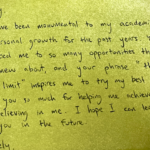 ve been monumental to my academ
rsonal growth for the past years.
ced me to so many opportunities th
new about, and your phrase "th
limit" inspires me to try my best
you so much for helping me achieve
elieving in me. I hope I can lear
you in the future.
ely,